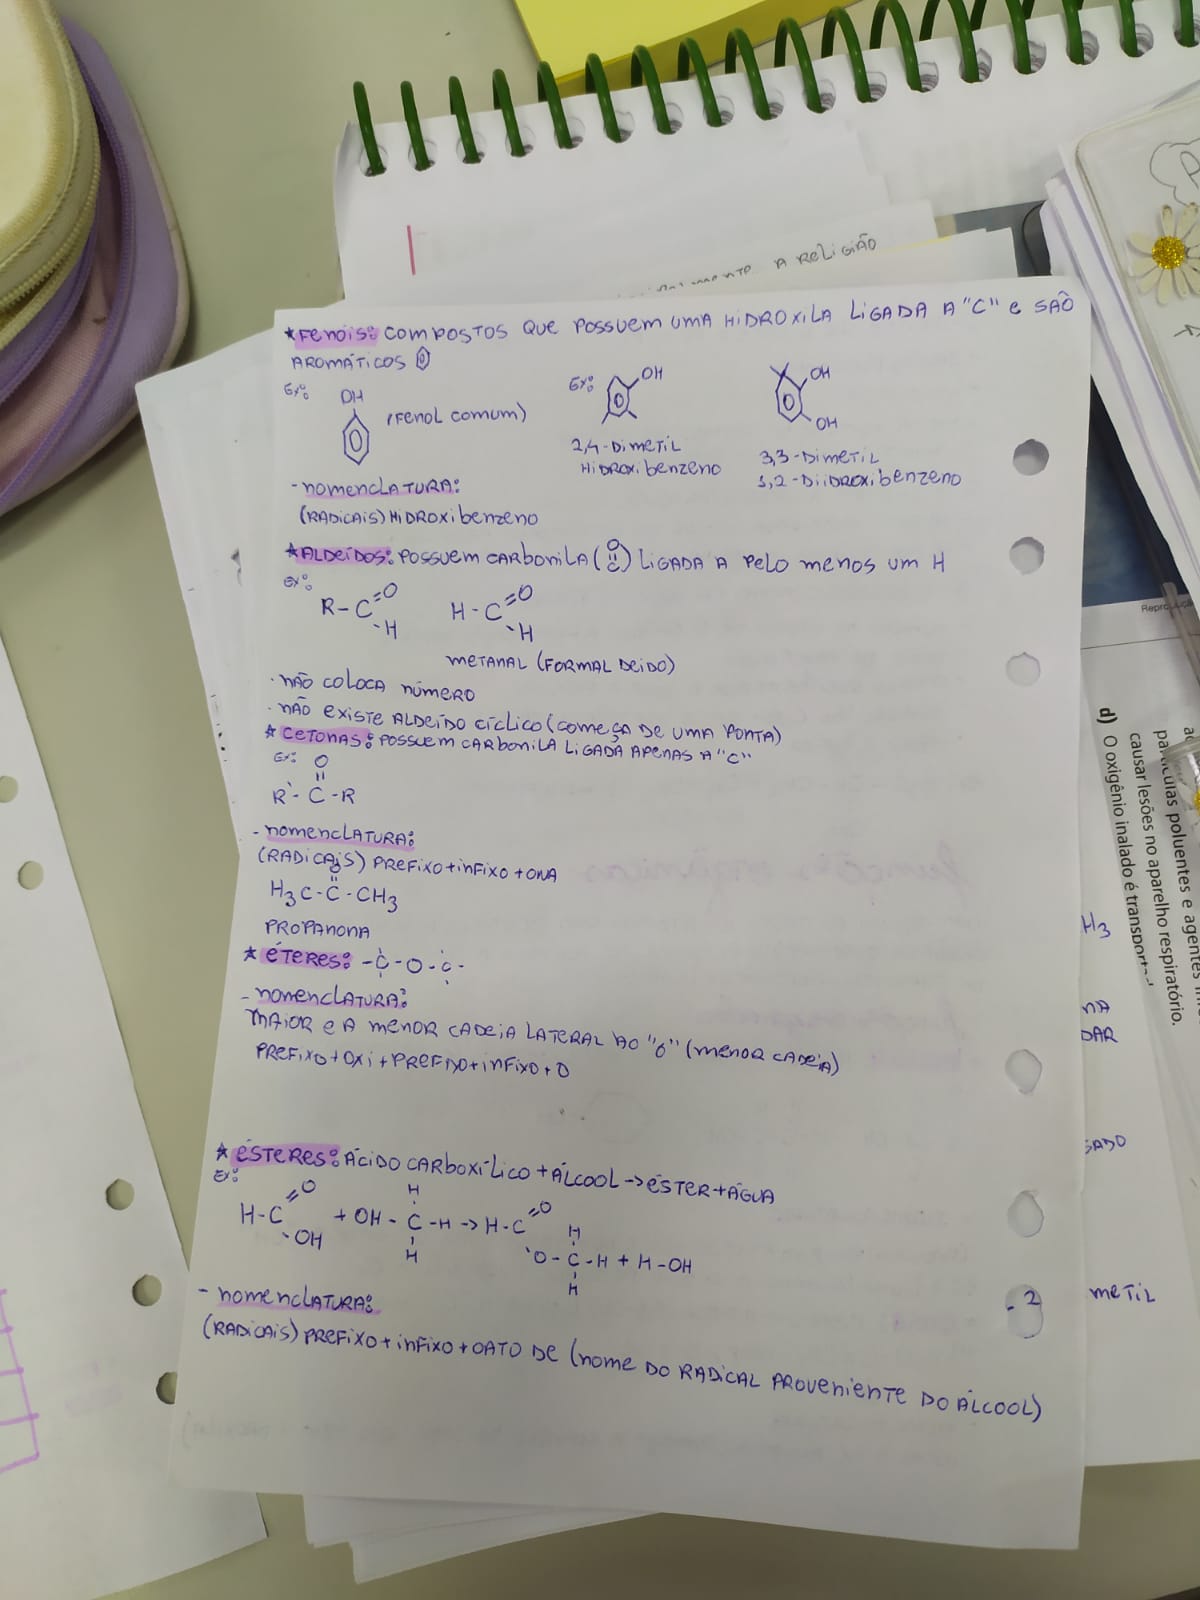 A RELIGIÃO
*FENÓIS: COMPOSTOS QUE POSSUEM UMA HIDROXILA LIGADA A "C" E SAÕ
AROMÁTICOS
Ex:
OH
(FENOL COMUM)
Ex:
OH
2,4-DIMETIL
HIDROXIBENZENO
OH
OH
3,3-DIMETIL
1,2-DIIDROXIBENZENO
-NOMENCLATURA:
(RADICAIS) HIDROXIBENZENO
*ALDEÍDOS: POSSUEM CARBONILA (O=C) LIGADA A PELO MENOS UM H
Ex:
R-C=O
-H
H-C=O
-H
METANAL (FORMALDEIDO)
·NÃO COLOCA NÚMERO
·NÃO EXISTE ALDEÍDO CÍCLICO (COMEÇA DE UMA PONTA)
*CETONAS: POSSUEM CARBONILA LIGADA APENAS A "C"
Ex: O
R'-C-R
-NOMENCLATURA:
(RADICAIS) PREFIXO+INFIXO+ONA
O
H3C-C-CH3
PROPANONA
*ÉTERES: -C-O-C-
-NOMENCLATURA:
MAIOR E A MENOR CADEIA LATERAL AO "O" (MENOR CADEIA)
PREFIXO+OXI+PREFIXO+INFIXO+O
*ÉSTERES: ÁCIDO CARBOXÍLICO+ÁLCOOL->ÉSTER+ÁGUA
Ex:
H-C=O
-OH
+ OH-C-H -> H-C=O
H
H
O-C-H + H-OH
H
H
-NOMENCLATURA:
(RADICAIS) PREFIXO+INFIXO+OATO DE (NOME DO RADICAL PROVENIENTE DO ÁLCOOL)
-2
H3
NA
DAR
METIL
d) O oxigênio inalado é
causar lesões no aparelho respiratório.
poluentes e agentes